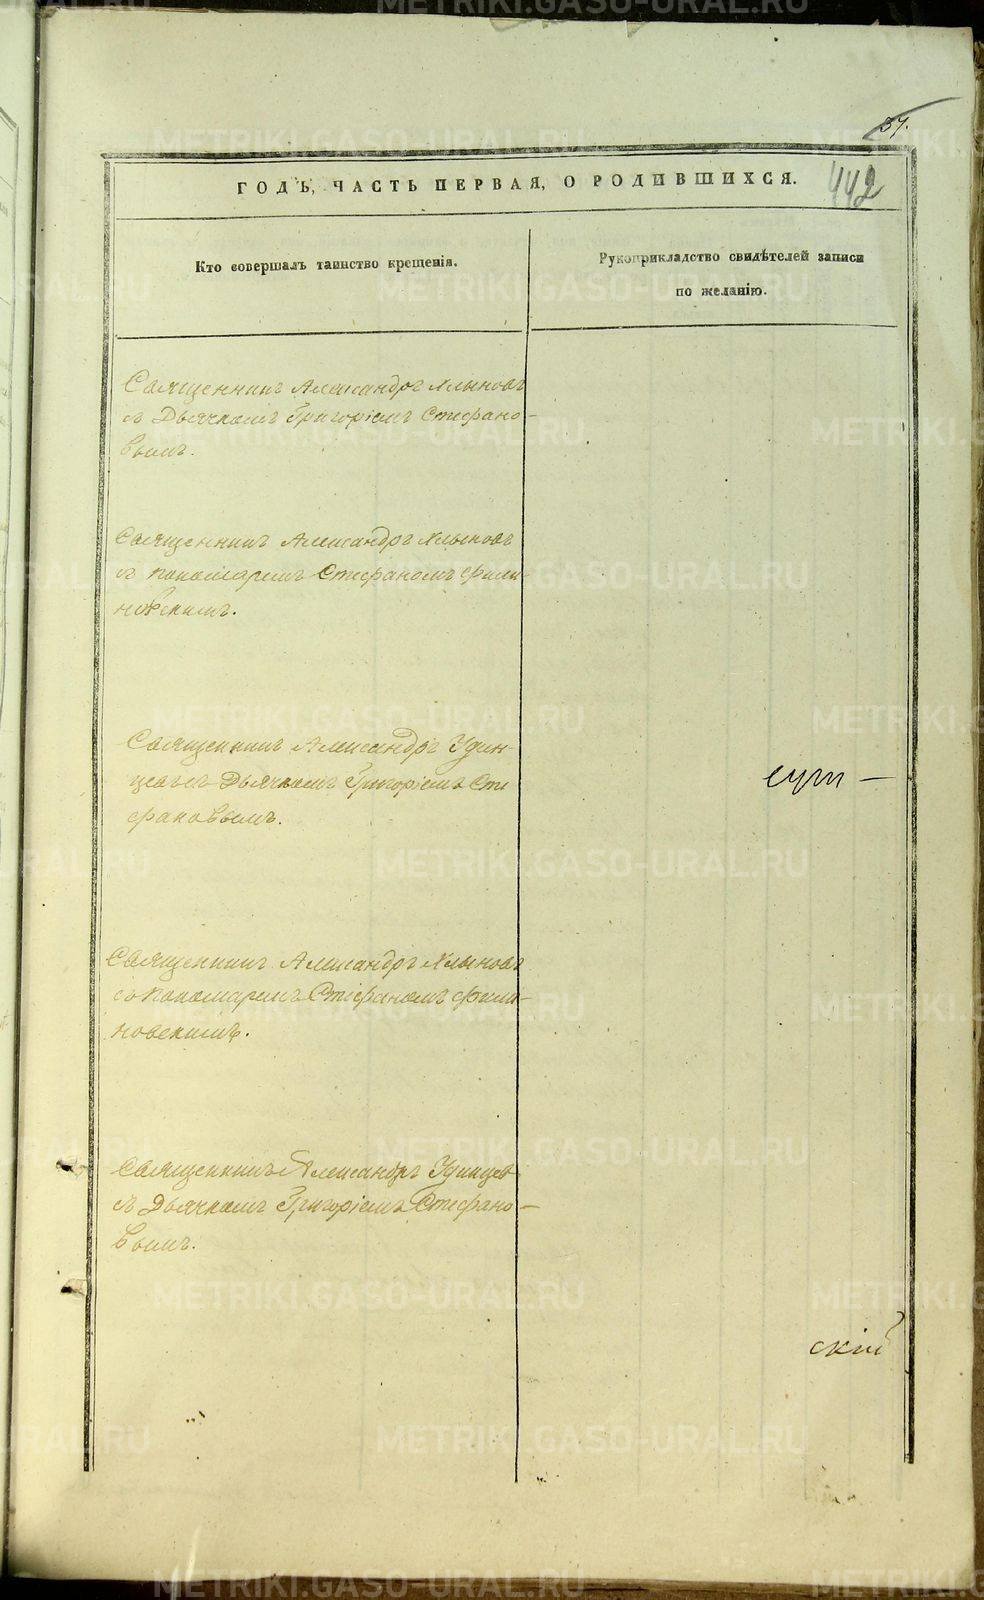 37.
442
ГОДЪ, ЧАСТЬ ПЕРВАЯ, О РОДИВШИХСЯ.
Кто совершалъ таинство крещенія.
Рукоприкладство свидѣтелей записи
по желанію.
Священникъ Александръ Хлыновъ
съ Дьячкомъ Григоріемъ Стефано-
вымъ.
Священникъ Александръ Хлыновъ
съ пономаремъ Стефаномъ Фили-
новскимъ.
Священникъ Александръ Удин-
цевъ съ Дьячкомъ Григоріемъ Сте
фановымъ.
Священникъ Александръ Хлыновъ
съ пономаремъ Стефаномъ Фили-
новскимъ.
Священникъ Александръ Удинцев
съ Дьячкомъ Григоріемъ Стефано-
вымъ.
скій
METRIKI.GASO-URAL.RU